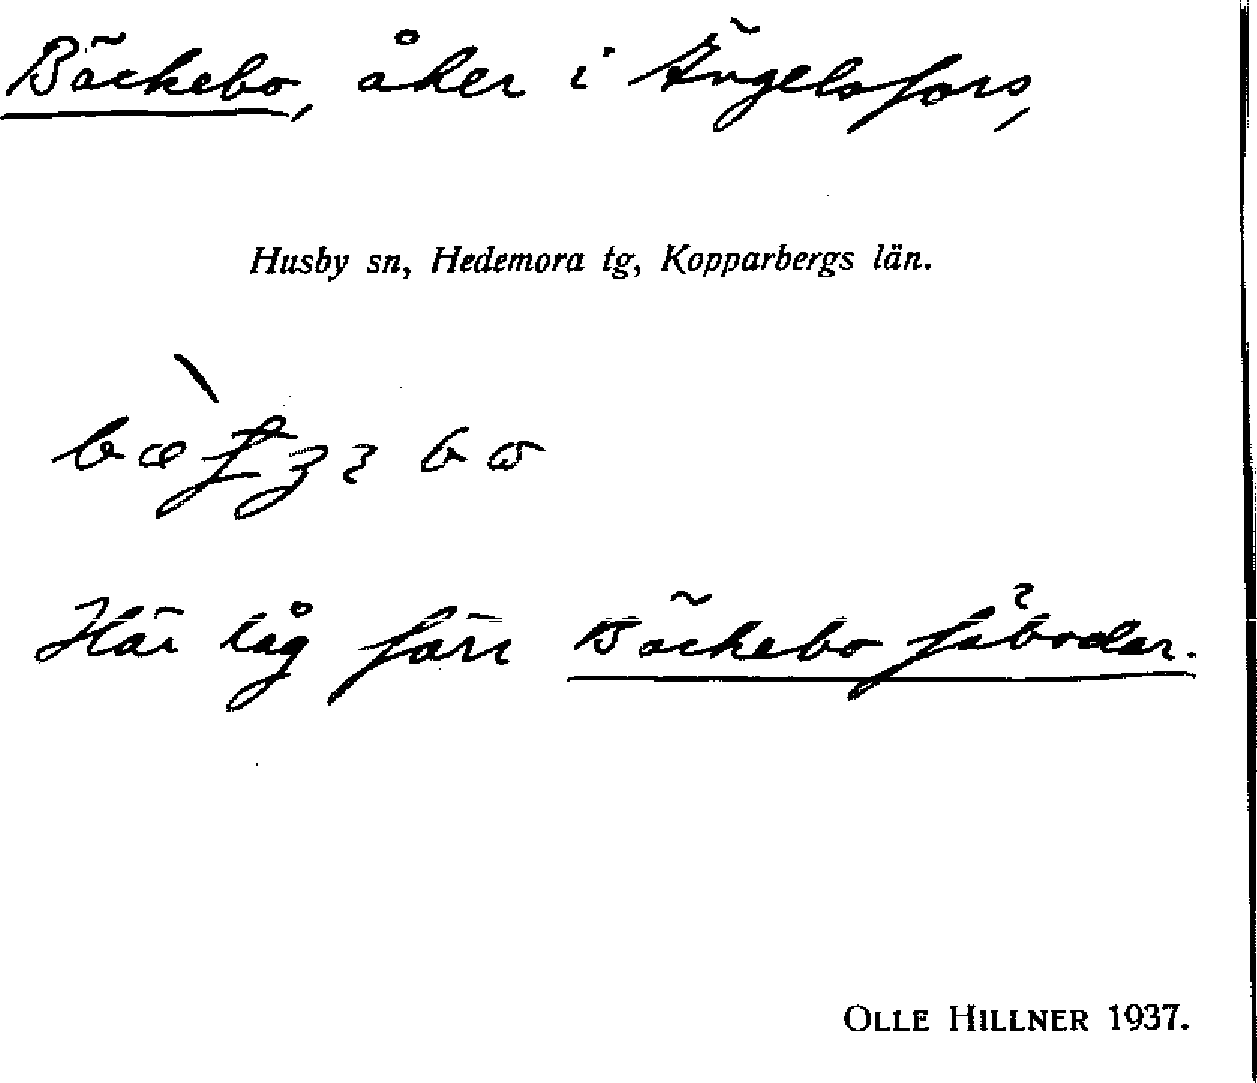 Bäckebo, åker i Ängelsfors,
Husby sn, Hedemora tg, Kopparbergs län.
Här låg förr Bäckebo fäbodar.
OLLE HILLNER 1937.